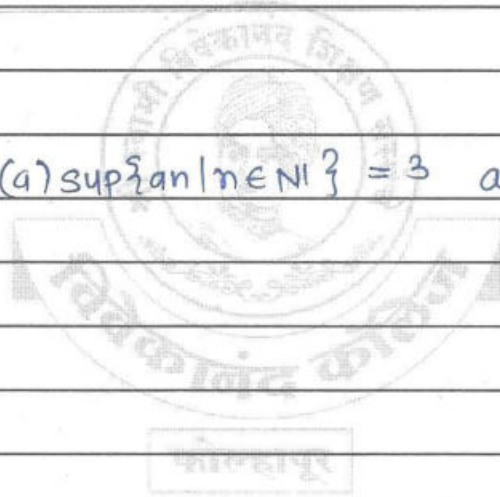 (a) sup{an | n ∈ N} = 3 a
विवेकानंद कॉलेज
कोल्हापूर